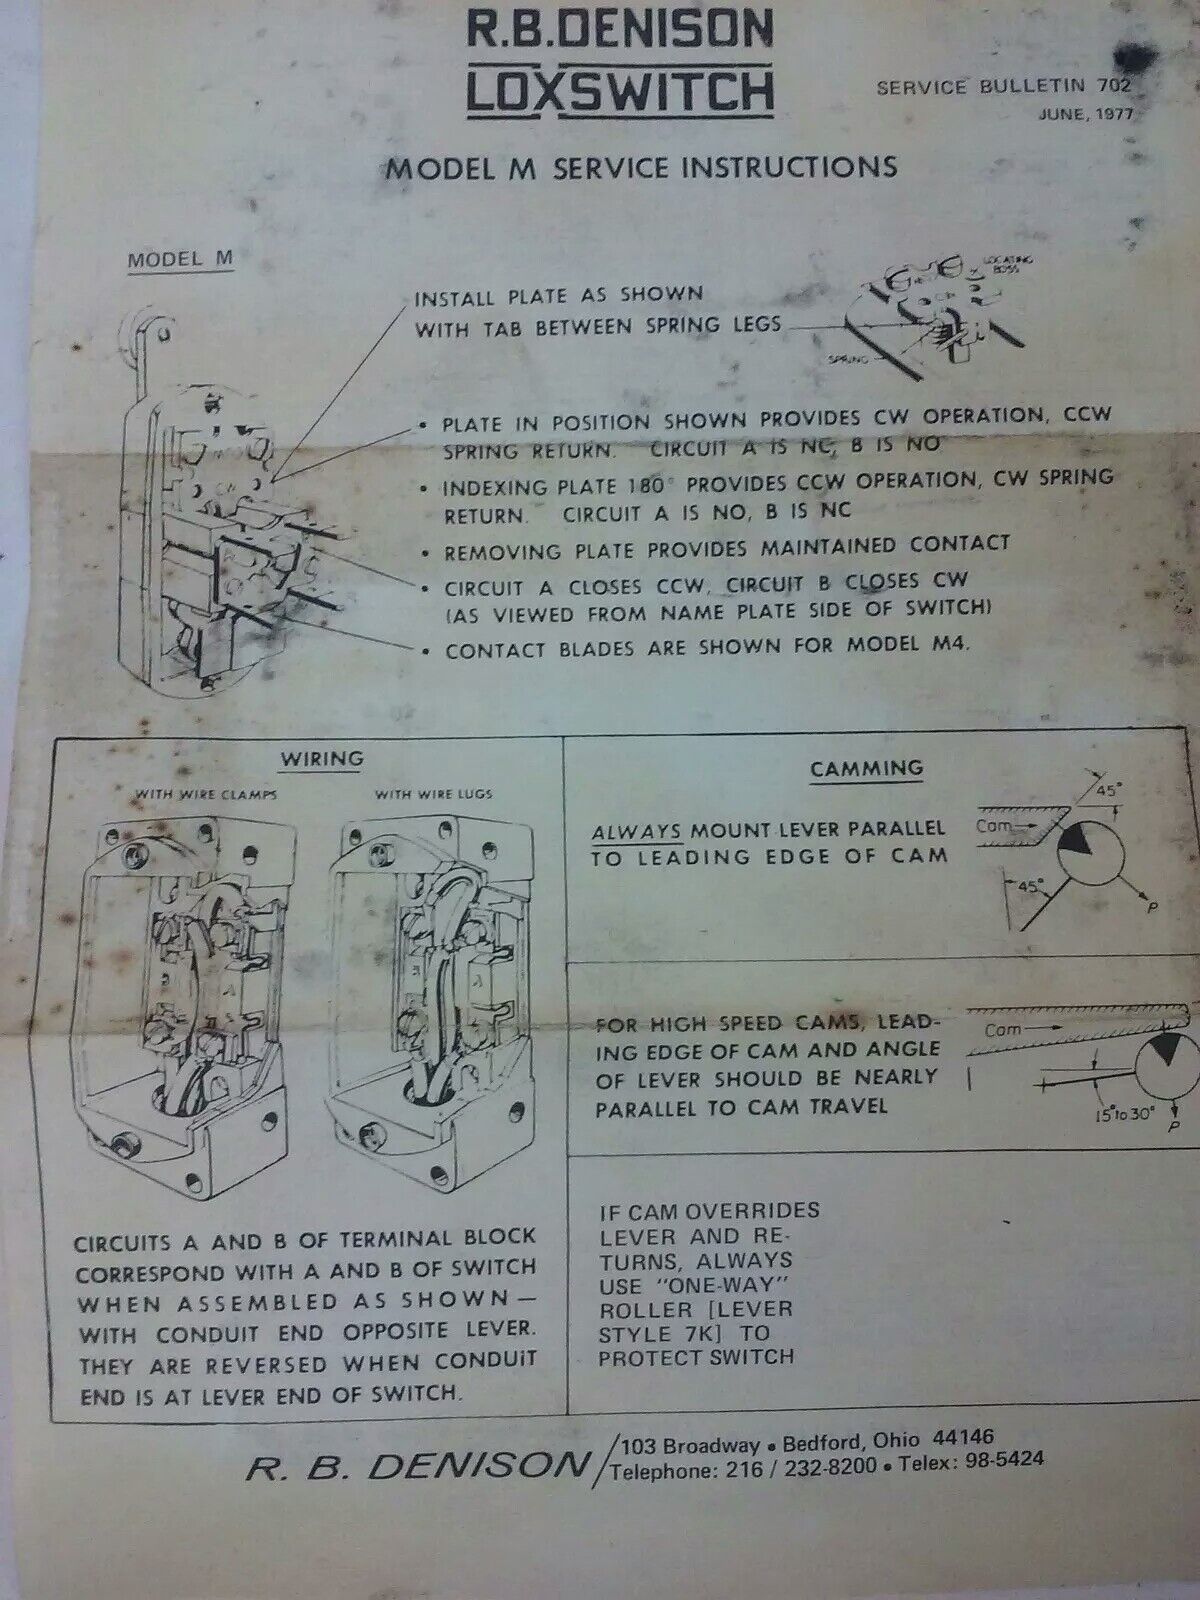 R.B.DENISON
LOXSWITCH
SERVICE BULLETIN 702
JUNE, 1977
MODEL M SERVICE INSTRUCTIONS
MODEL M
INSTALL PLATE AS SHOWN
WITH TAB BETWEEN SPRING LEGS
LOCATING
BOSS
SPRING
• PLATE IN POSITION SHOWN PROVIDES CW OPERATION, CCW
SPRING RETURN. CIRCUIT A IS NC, B IS NO
• INDEXING PLATE 180° PROVIDES CCW OPERATION, CW SPRING
RETURN. CIRCUIT A IS NO, B IS NC
• REMOVING PLATE PROVIDES MAINTAINED CONTACT
• CIRCUIT A CLOSES CCW, CIRCUIT B CLOSES CW
(AS VIEWED FROM NAME PLATE SIDE OF SWITCH)
• CONTACT BLADES ARE SHOWN FOR MODEL M4.
WIRING
WITH WIRE CLAMPS
WITH WIRE LUGS
B
A
B
A
CIRCUITS A AND B OF TERMINAL BLOCK
CORRESPOND WITH A AND B OF SWITCH
WHEN ASSEMBLED AS SHOWN —
WITH CONDUIT END OPPOSITE LEVER.
THEY ARE REVERSED WHEN CONDUIT
END IS AT LEVER END OF SWITCH.
CAMMING
ALWAYS MOUNT LEVER PARALLEL
TO LEADING EDGE OF CAM
Cam
45°
45°
P
FOR HIGH SPEED CAMS, LEAD-
ING EDGE OF CAM AND ANGLE
OF LEVER SHOULD BE NEARLY
PARALLEL TO CAM TRAVEL
Cam
15° to 30°
P
IF CAM OVERRIDES
LEVER AND RE-
TURNS, ALWAYS
USE "ONE-WAY"
ROLLER [LEVER
STYLE 7K] TO
PROTECT SWITCH
R. B. DENISON
103 Broadway • Bedford, Ohio 44146
Telephone: 216 / 232-8200 • Telex: 98-5424